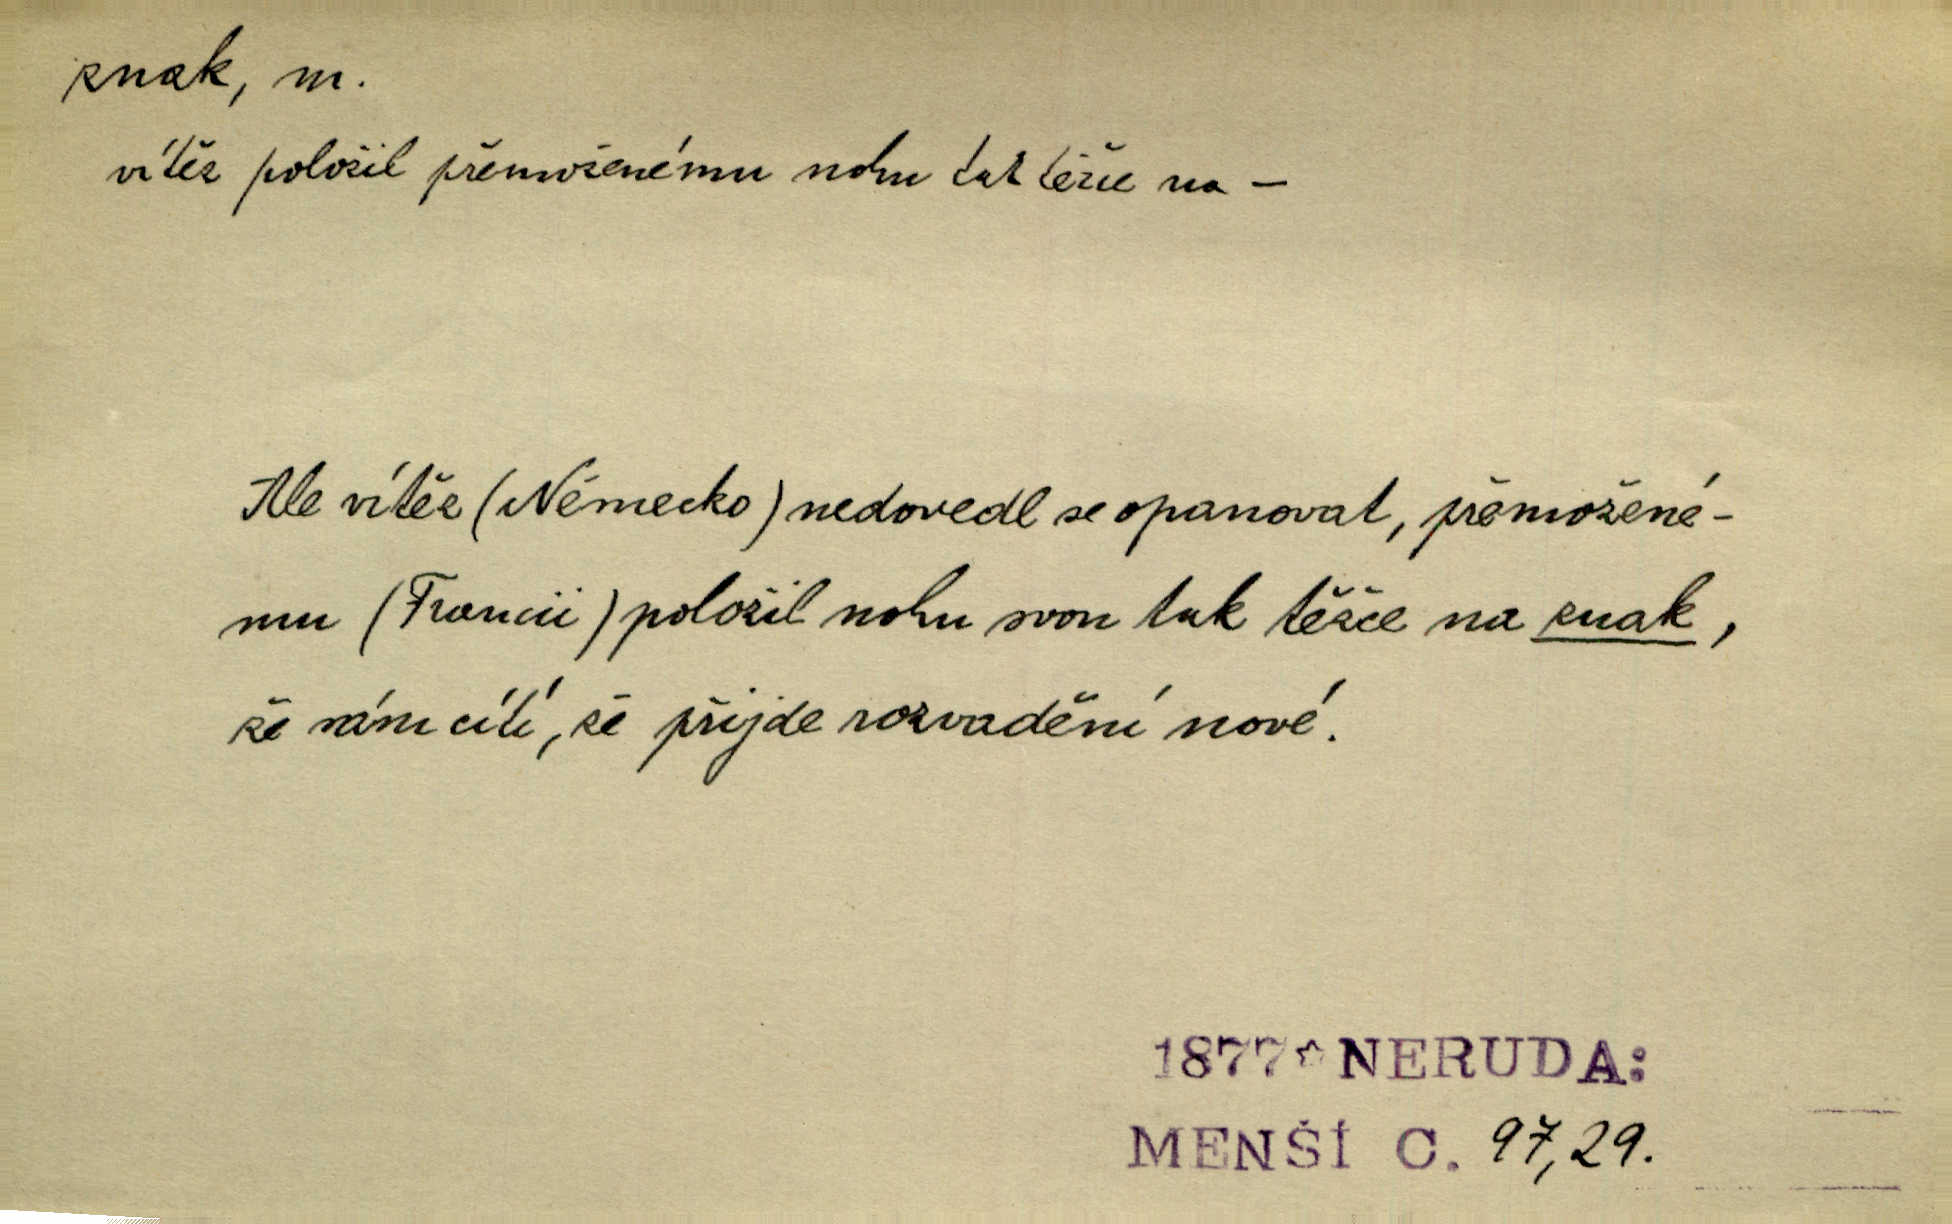 znak, m.
vítěz položil přemoženému nohu tak těžce na –
Ale vítěz (Německo) nedovedl se opanovat, přemožené-
mu (Francii) položil nohu svou tak těžce na znak,
že sám cítí, že přijde rozvadění nové.
1877*NERUDA:
MENŠÍ C. 97,29.